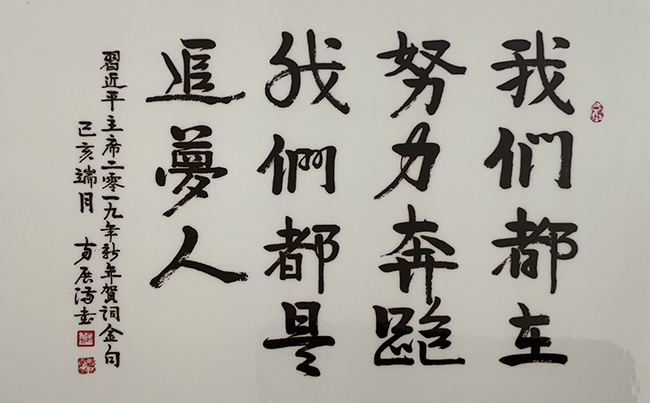 我们都在
努力奔跑
我們都是
追夢人
習近平主席二零一九年新年賀詞金句
己亥端月 方展海書